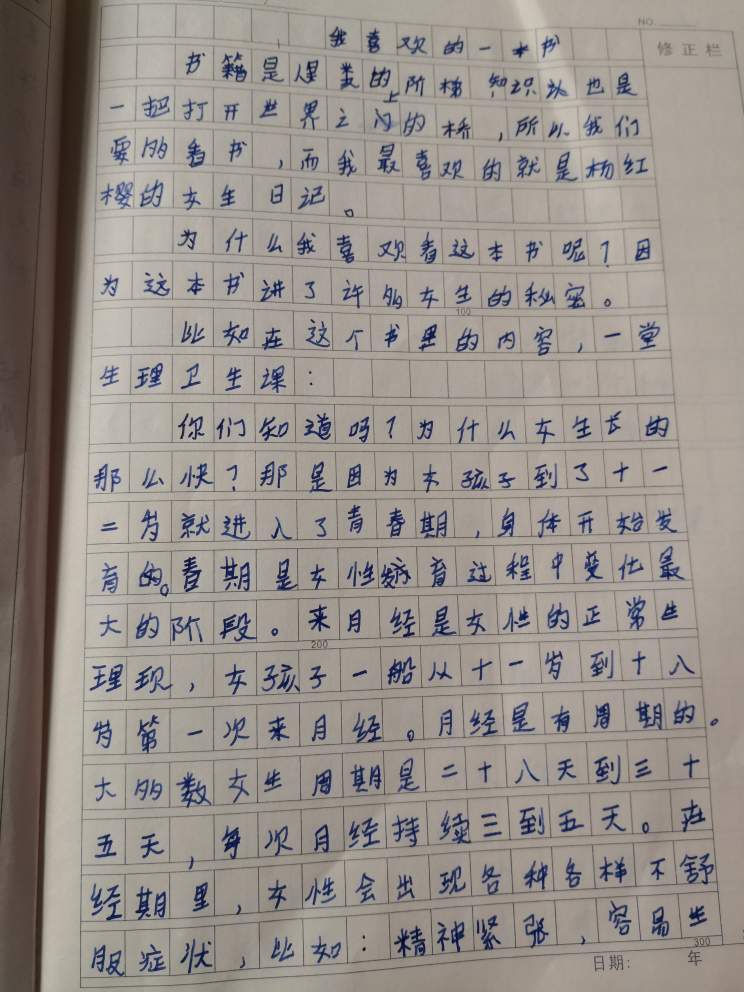 NO.
修正栏
我喜欢的一本书
书籍是人类的上阶梯 知识也是
一把打开世界之门的桥，所以我们
要多看书，而我最喜欢的就是杨红
樱的女生日记。
为什么我喜欢看这本书呢？因
为这本书讲了许多女生的秘密。
100
比如在这个书里的内容，一堂
生理卫生课：
你们知道吗？为什么女生长的
那么快？那是因为本孩子到了十一
二岁就进入了青春期，身体开始发
育的。青期是女性发育过程中变化最
大的阶段。来月经是女性的正常生
200
理现，女孩子一般从十一岁到十八
岁第一次来月经。月经是有周期的。
大多数女生周期是二十八天到三十
五天，每次月经持续三到五天。在
经期里，女性会出现各种各样不舒
服症状，比如：精神紧张，容易生
300
日期： 年